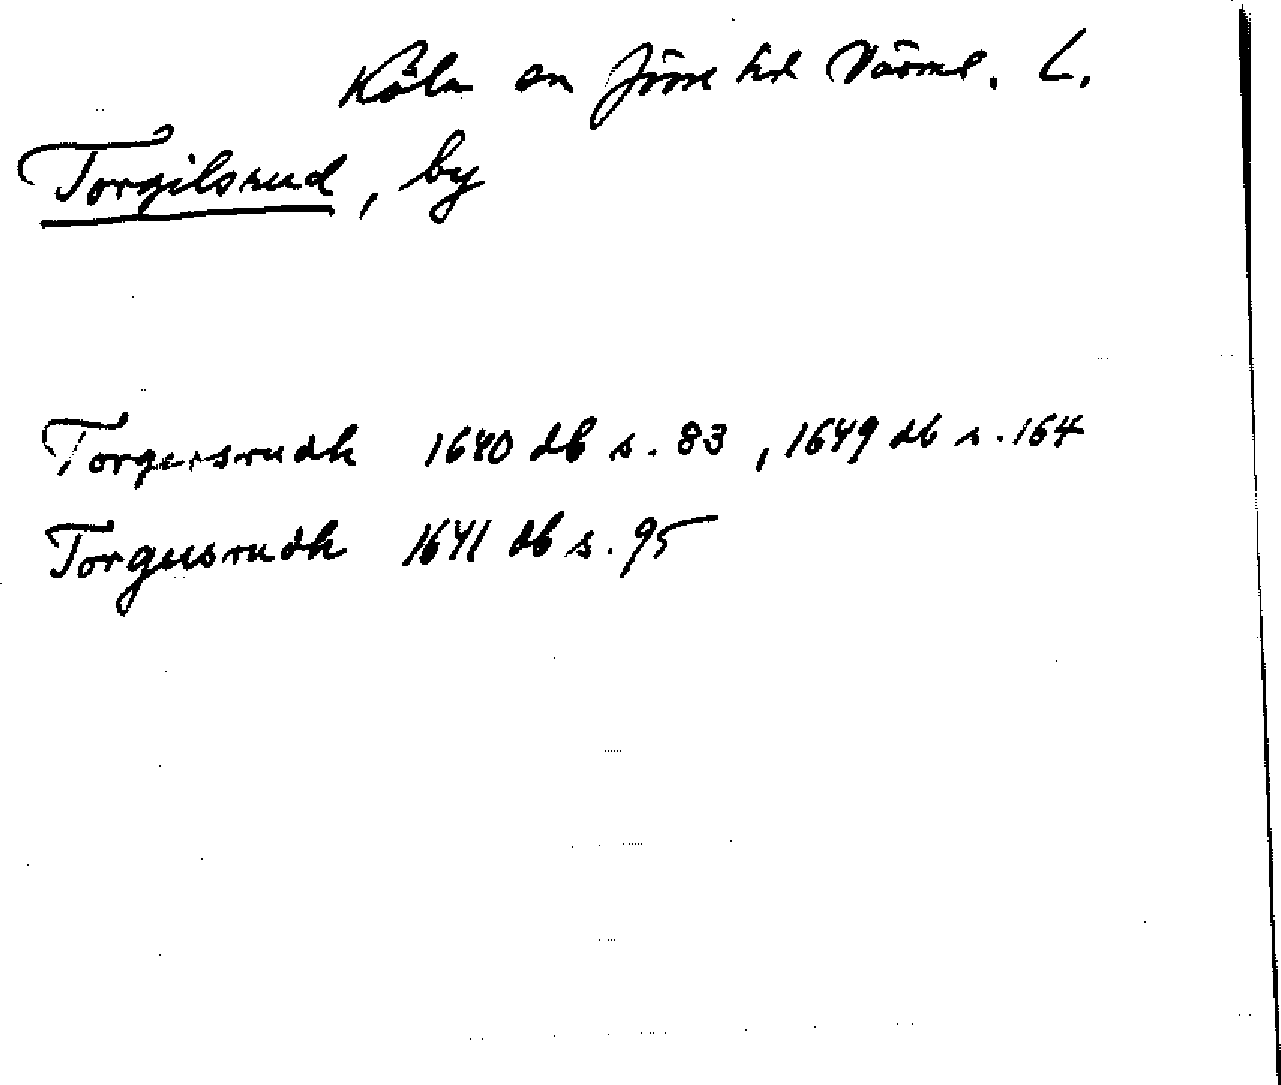 Köla sn Jösse hd Värml. L.
Torgilsrud, by
Torgersrudh 1640 db s. 83, 1649 db s. 164
Torgusrudh 1641 db s. 95